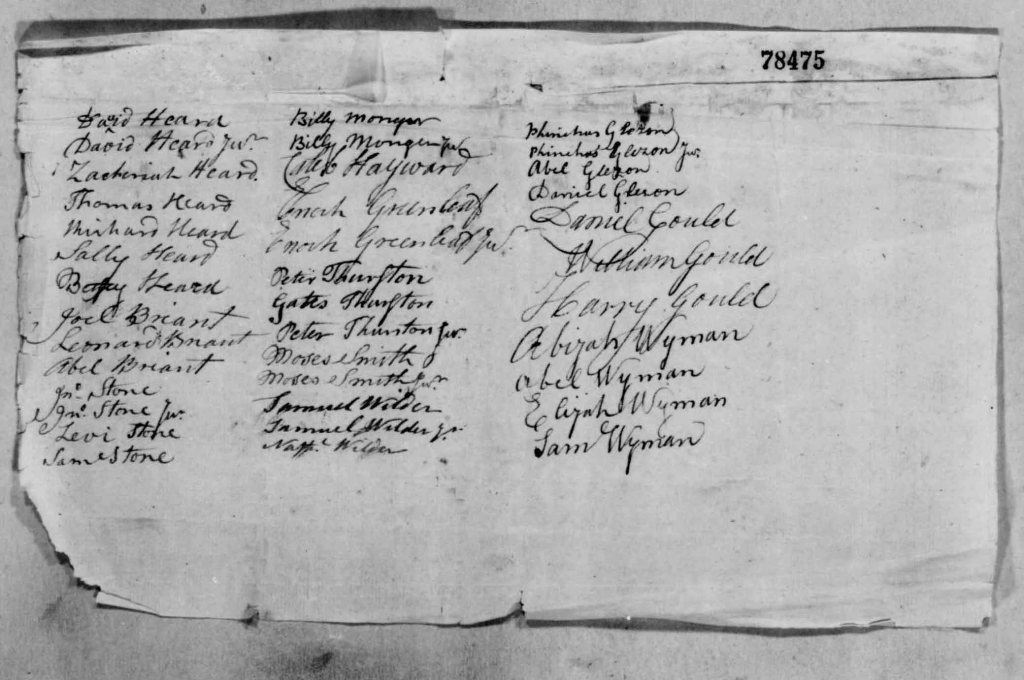 78475
David Heard
David Heard Jur.
Zacheriah Heard.
Thomas Heard
Richard Heard
Sally Heard
Betsy Heard
Joel Briant
Leonard Briant
Abel Briant
Jno. Stone
Jno. Stone Jur.
Levi Stone
Sam Stone
Billy Monger
Billy Monger Jur
Hayward
Enoch Greenleaf
Enoch Greenleaf Jur.
Peter Thurston
Gates Thurston
Peter Thurston Jur.
Moses Smith
Moses Smith Jur.
Samuel Wilder
Samuel Wilder Jr
Nathl. Wilder
Phinehas Glezon
Phinehas Glezon Jur.
Abel Glezon
Daniel Glezon
Daniel Gould
William Gould
Harry Gould
Abijah Wyman
Abel Wyman
Elijah Wyman
Sam Wyman